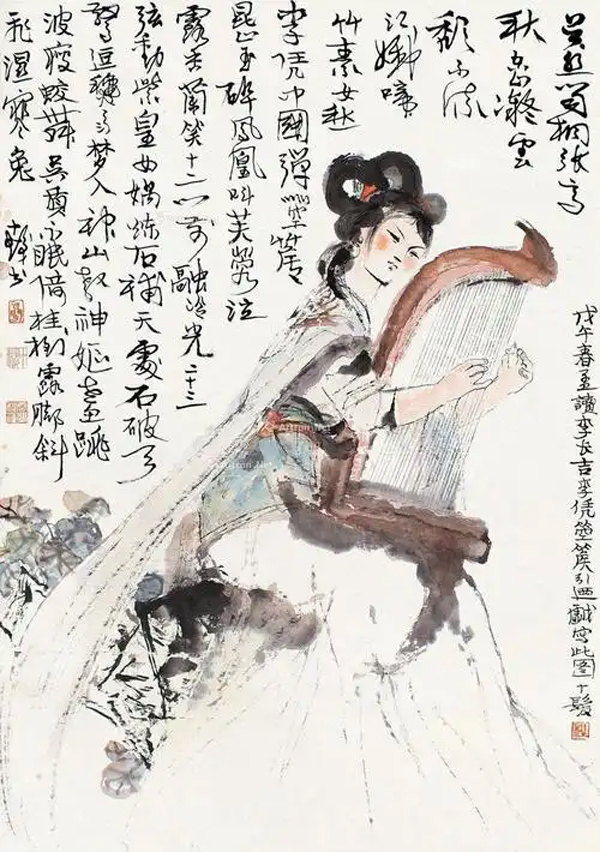 吴丝蜀桐张高
秋空凝雲
颓不流
江娥啼
竹素女愁
李凭中國弹箜篌
崑山玉碎鳳凰叫芙蓉泣
露香蘭笑十二门前融冷光二十三
弦動紫皇女媧炼石補天處石破天
驚逗秋雨梦入神山教神嫗老魚跳
波瘦蛟舞吴質不眠倚桂樹露脚斜
飛湿寒兔
戊午春孟讀李长吉李凭箜篌引写此图十髮
Artron.Net